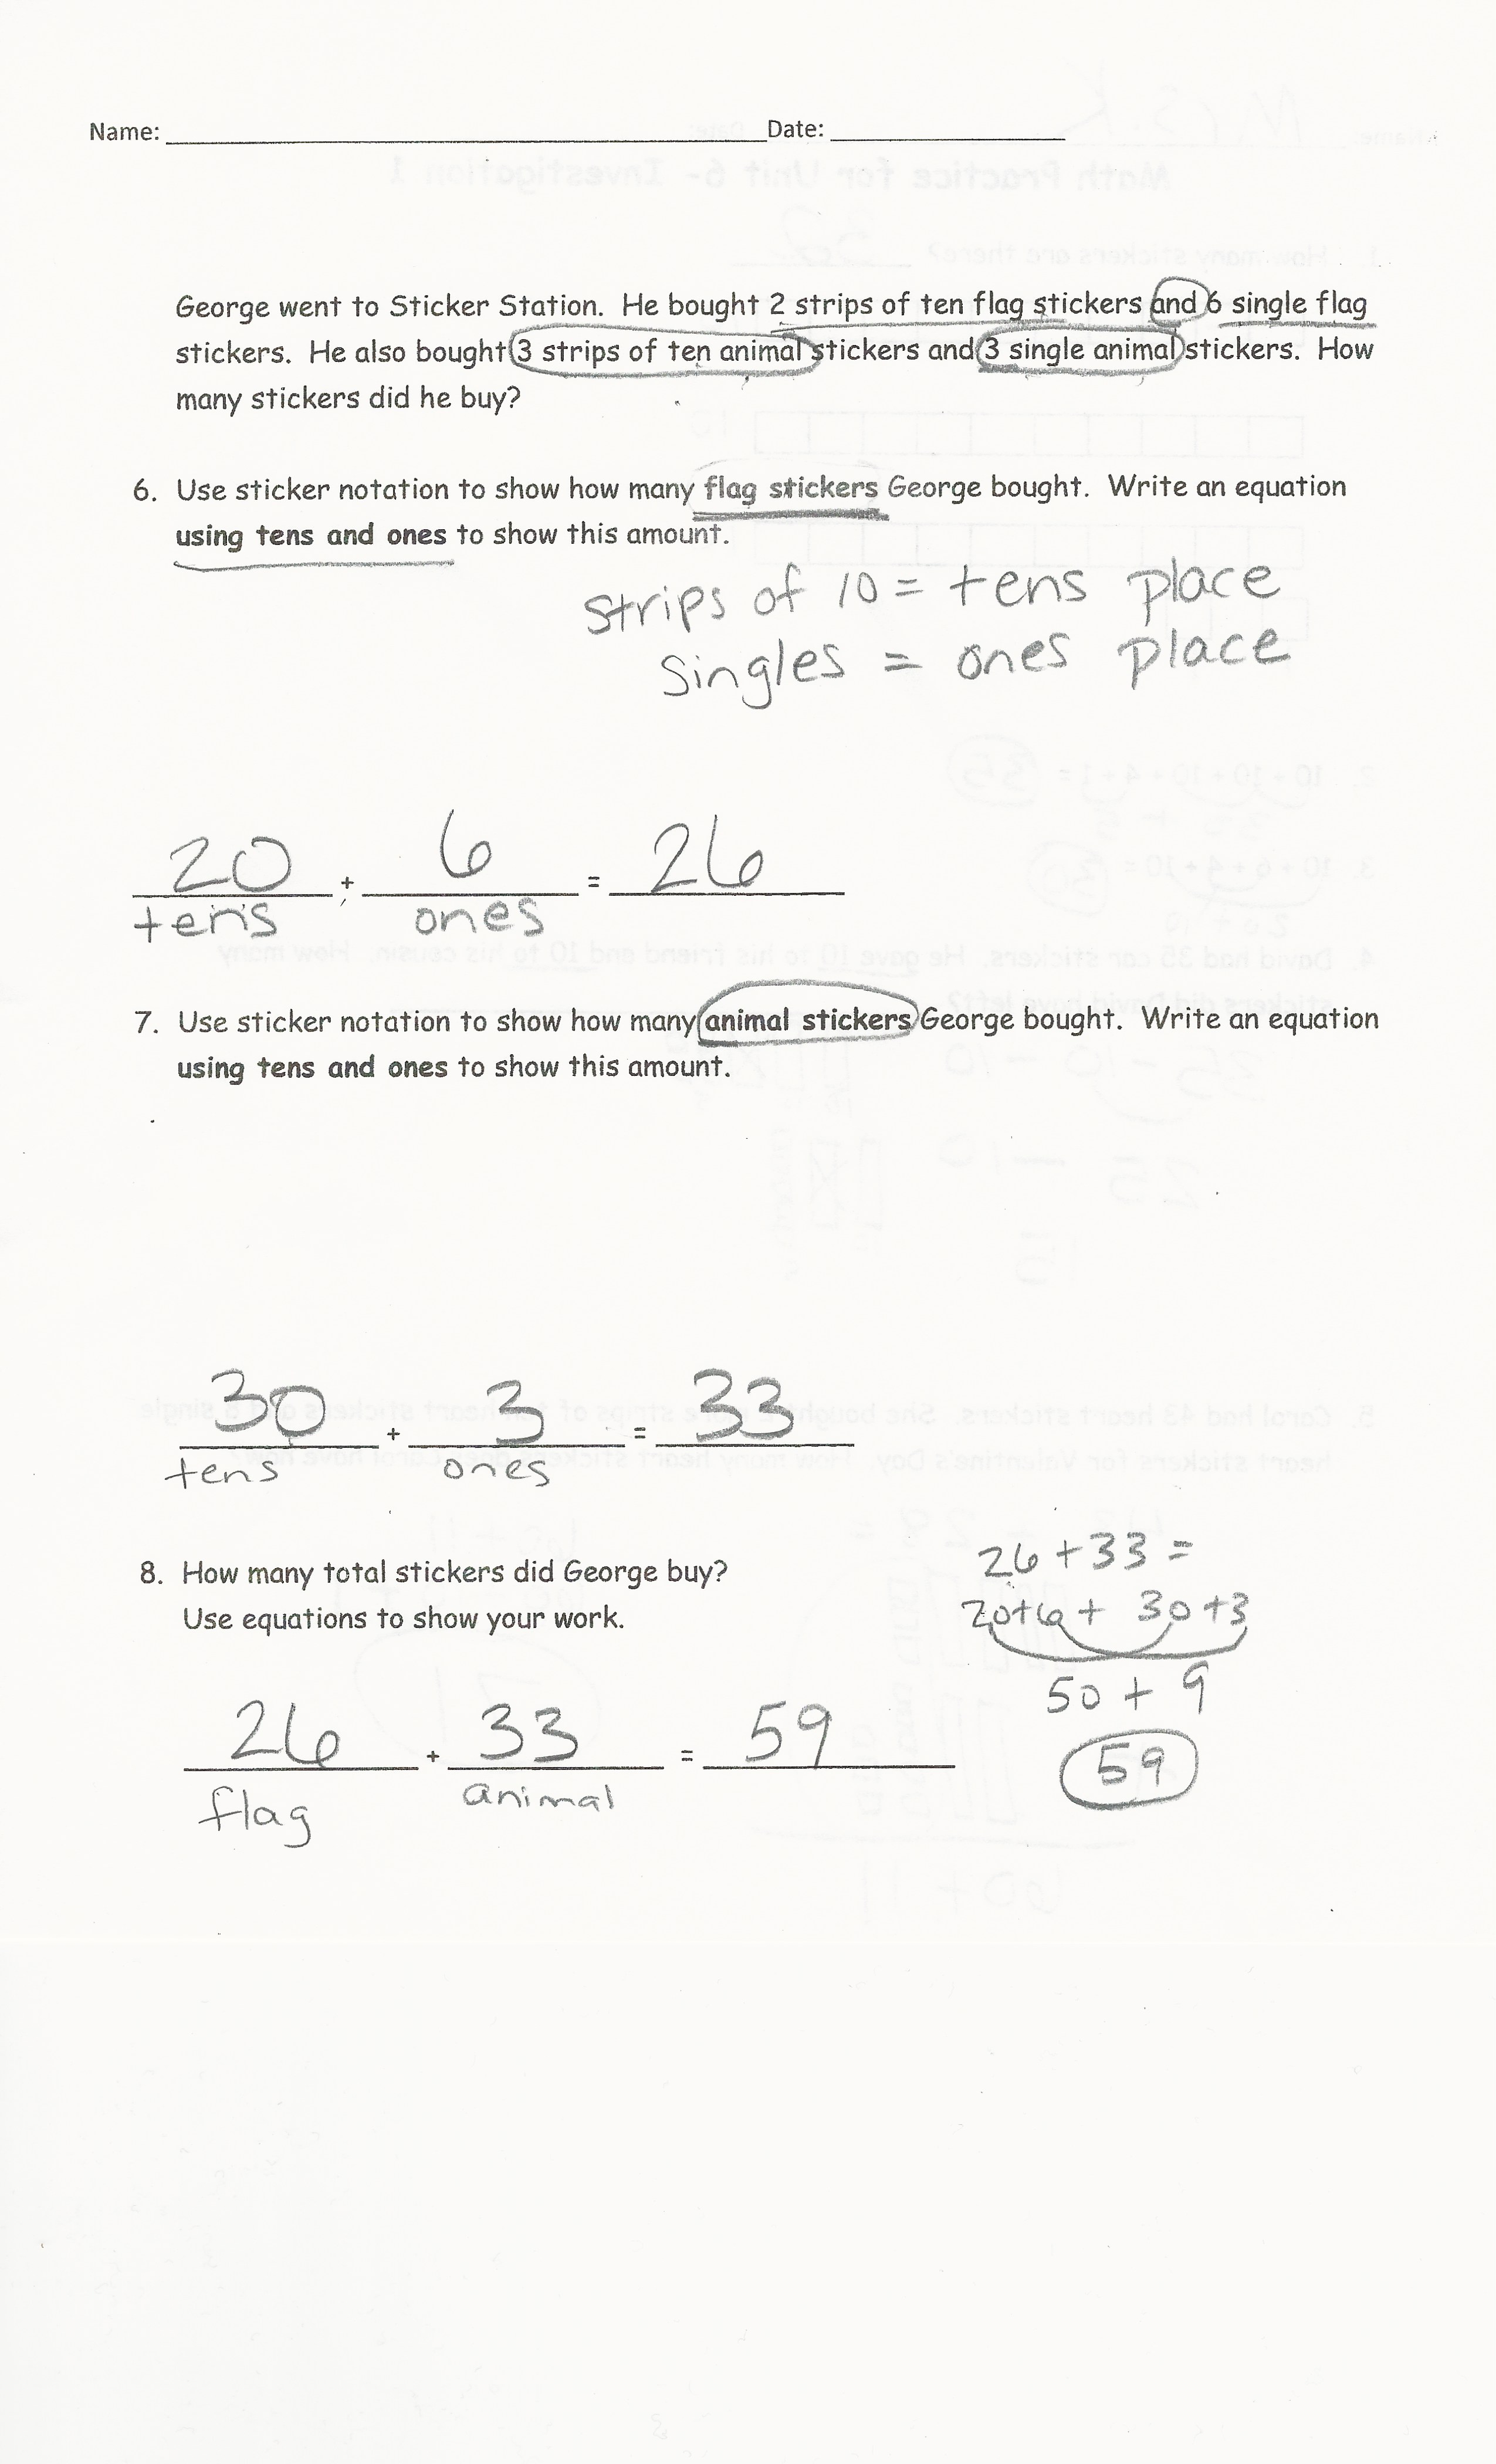 Name: Date:
George went to Sticker Station. He bought 2 strips of ten flag stickers and 6 single flag
stickers. He also bought 3 strips of ten animal stickers and 3 single animal stickers. How
many stickers did he buy?
6. Use sticker notation to show how many flag stickers George bought. Write an equation
using tens and ones to show this amount.
strips of 10 = tens place
Singles = ones place
20 + 6 = 26
tens ones
7. Use sticker notation to show how many animal stickers George bought. Write an equation
using tens and ones to show this amount.
30 + 3 = 33
tens ones
8. How many total stickers did George buy?
Use equations to show your work.
26 + 33 =
20+6 + 30+3
50 + 9
59
26 + 33 = 59
flag animal